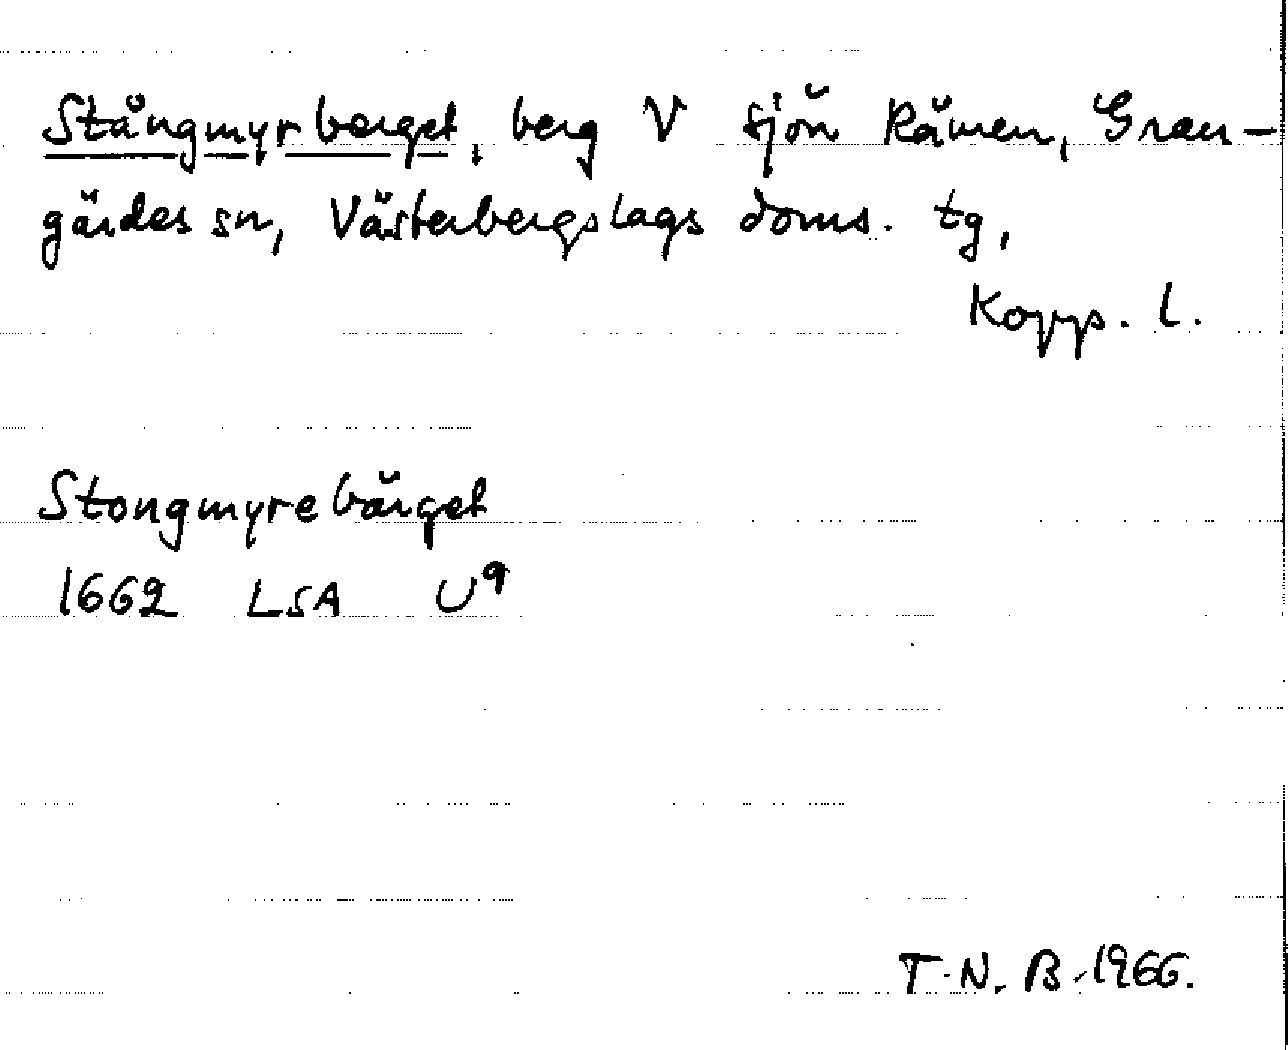 Stångmyrberget, berg V sjön Rämen, Gran-
gärdes sn, Västerbergslags doms. tg,
Kopp. l.
Stongmyrebärget
1662 LSA U9
T.N.B.1966.